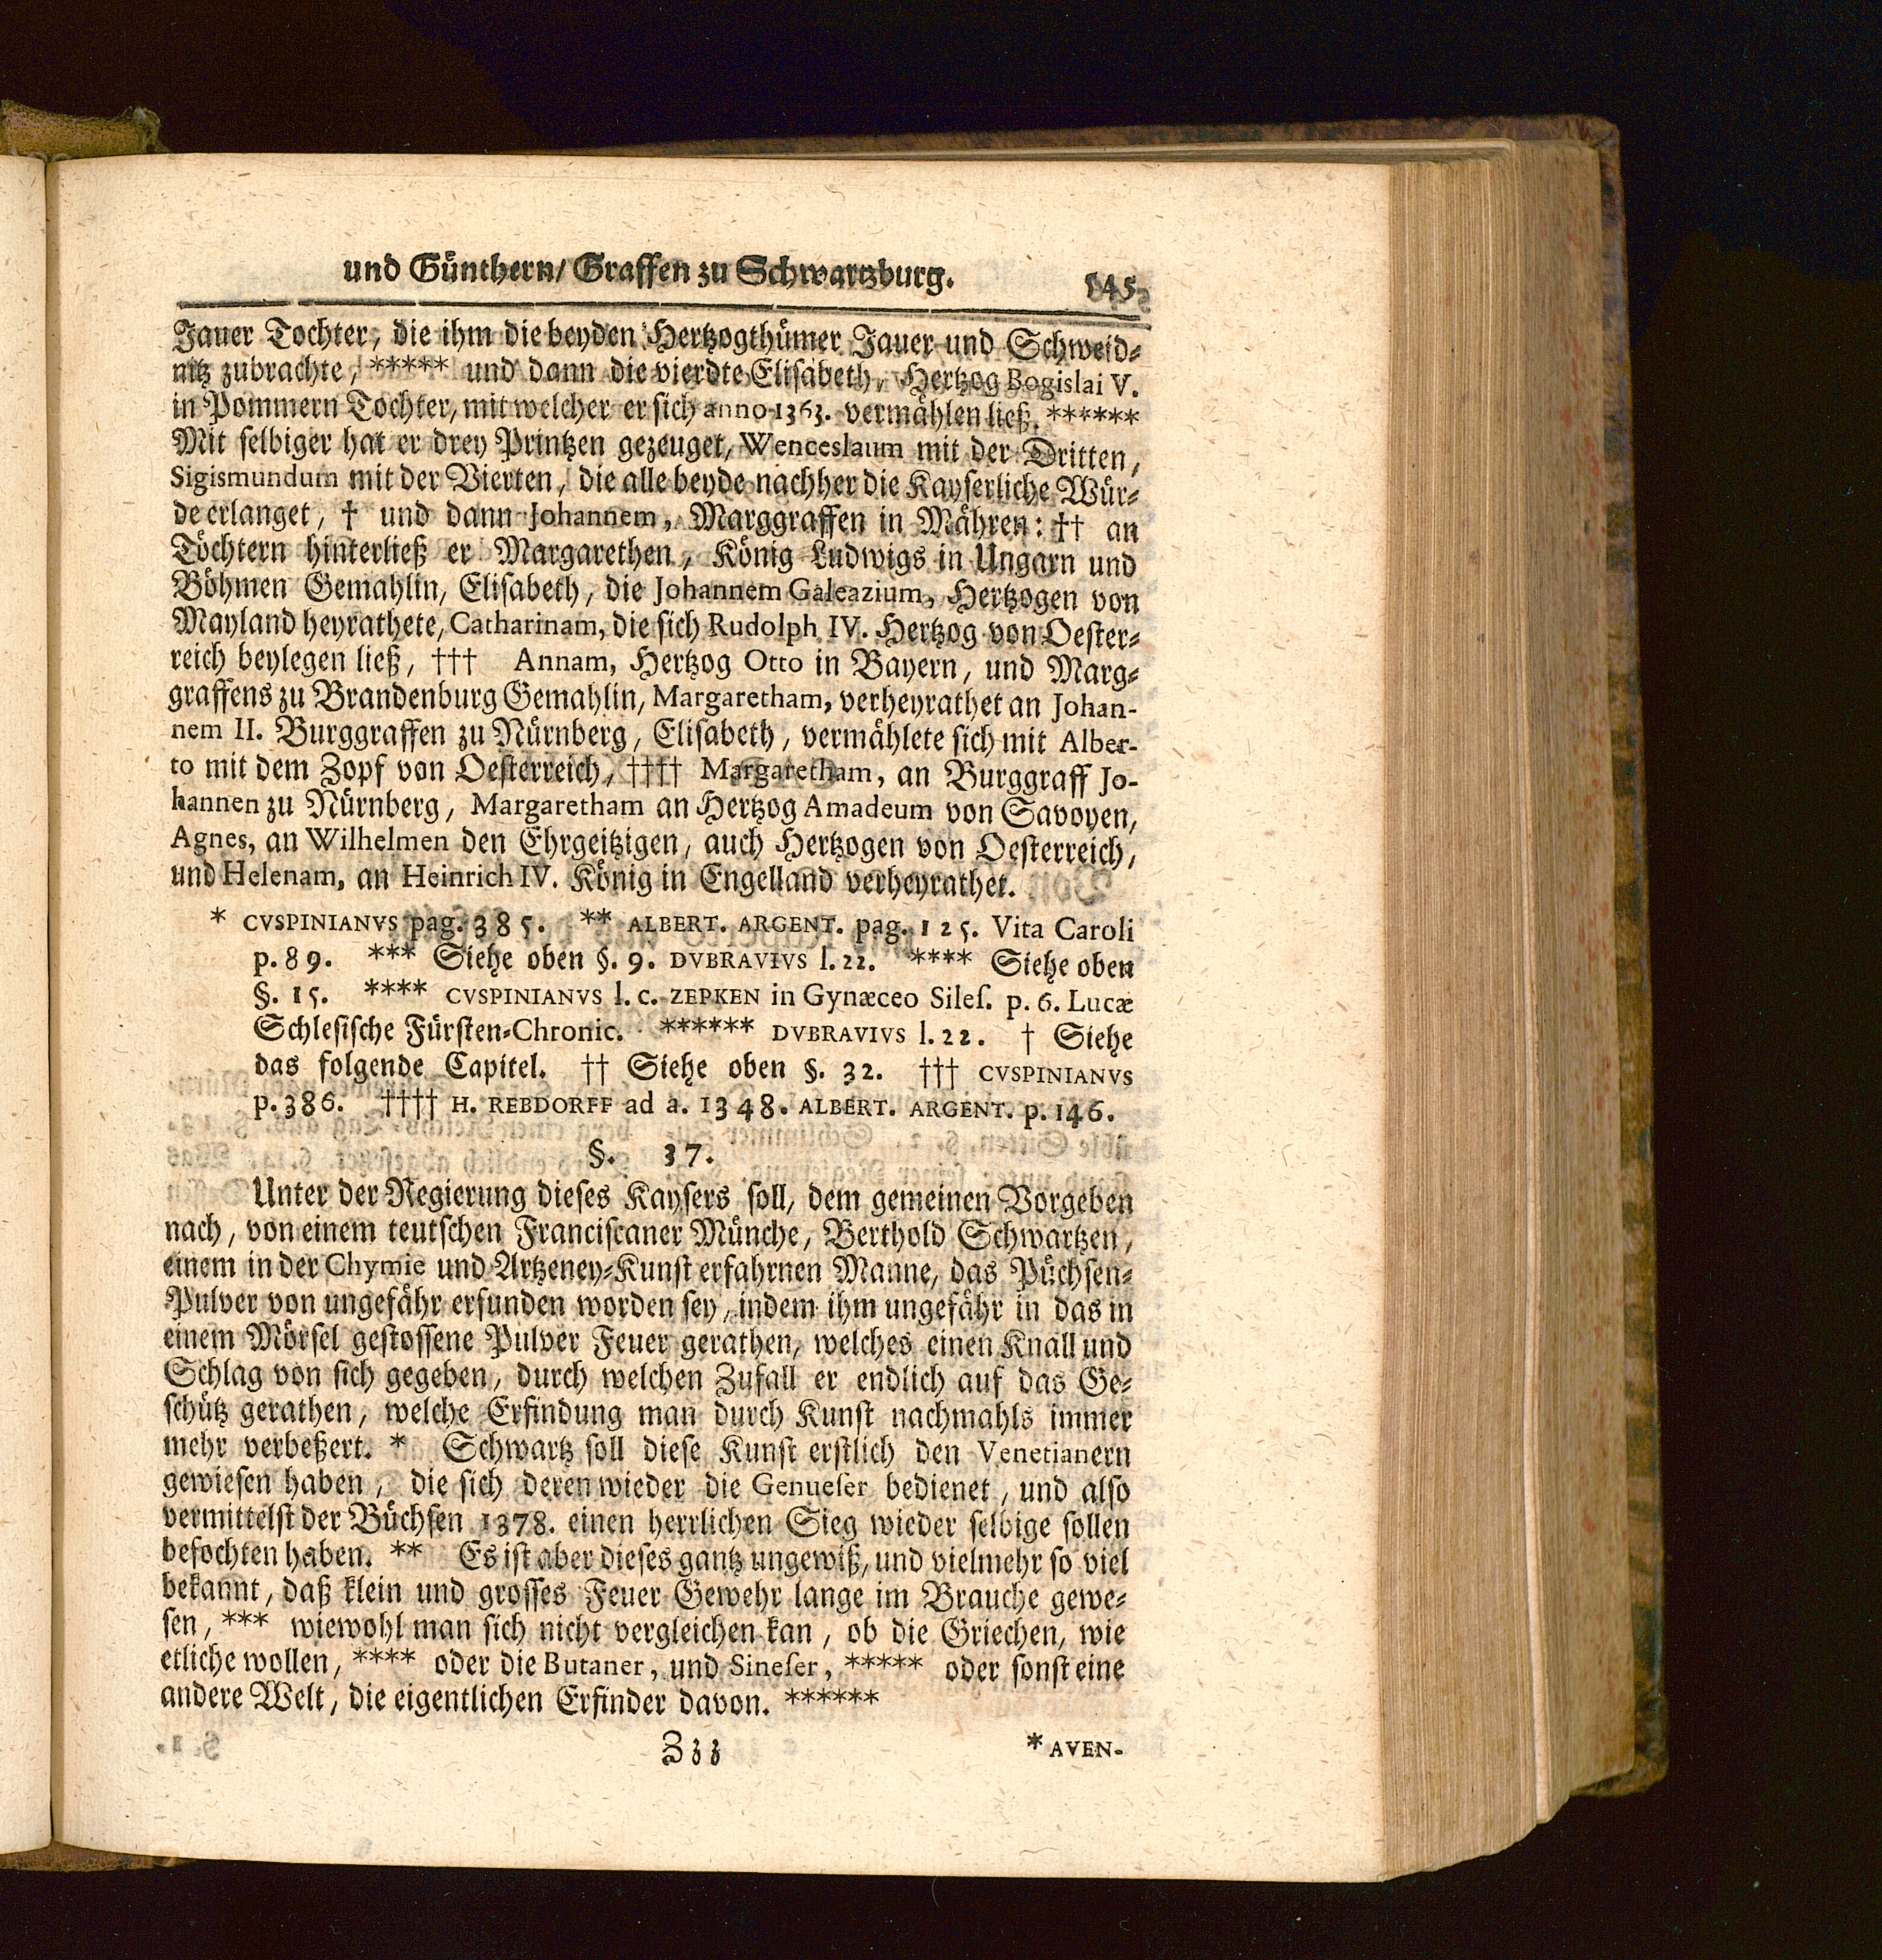 und Günthern/ Graffen zu Schwartzburg. 545
Jauer Tochter, die ihm die beyden Hertzogthümer Jauer und Schweid-
nitz zubrachte, ***** und dann die vierdte Elisabeth, Hertzog Bogislai V.
in Pommern Tochter, mit welcher er sich anno 1363. vermählen ließ. ******
Mit selbiger hat er drey Printzen gezeuget, Wenceslaum mit der Dritten,
Sigismundum mit der Vierten, die alle beyde nachher die Kayserliche Wür-
de erlanget, † und dann Johannem, Marggraffen in Mähren: †† an
Töchtern hinterließ er Margarethen, König Ludwigs in Ungarn und
Böhmen Gemahlin, Elisabeth, die Johannem Galeazium, Hertzogen von
Mayland heyrathete, Catharinam, die sich Rudolph IV. Hertzog von Oester-
reich beylegen ließ, ††† Annam, Hertzog Otto in Bayern, und Marg-
graffens zu Brandenburg Gemahlin, Margaretham, verheyrathet an Johan-
nem II. Burggraffen zu Nürnberg, Elisabeth, vermählete sich mit Alber-
to mit dem Zopf von Oesterreich, †††† Margaretham, an Burggraff Jo-
hannen zu Nürnberg, Margaretham an Hertzog Amadeum von Savoyen,
Agnes, an Wilhelmen den Ehrgeitzigen, auch Hertzogen von Oesterreich,
und Helenam, an Heinrich IV. König in Engelland verheyrathet.
* CVSPINIANVS pag. 385. ** ALBERT. ARGENT. pag. 125. Vita Caroli
p. 89. *** Siehe oben §. 9. DVBRAVIVS l. 22. **** Siehe oben
§. 15. **** CVSPINIANVS l. c. ZEPKEN in Gynæceo Siles. p. 6. Lucæ
Schlesische Fürsten-Chronic. ****** DVBRAVIVS l. 22. † Siehe
das folgende Capitel. †† Siehe oben §. 32. ††† CVSPINIANVS
p. 386. †††† H. REBDORFF ad a. 1348. ALBERT. ARGENT. p. 146.
§. 37.
Unter der Regierung dieses Kaysers soll, dem gemeinen Vorgeben
nach, von einem teutschen Franciscaner Münche, Berthold Schwartzen,
einem in der Chymie und Artzeney-Kunst erfahrnen Manne, das Püchsen-
Pulver von ungefähr erfunden worden sey, indem ihm ungefähr in das in
einem Mörsel gestossene Pulver Feuer gerathen, welches einen Knall und
Schlag von sich gegeben, durch welchen Zufall er endlich auf das Ge-
schütz gerathen, welche Erfindung man durch Kunst nachmahls immer
mehr verbeßert. * Schwartz soll diese Kunst erstlich den Venetianern
gewiesen haben, die sich deren wieder die Genueser bedienet, und also
vermittelst der Büchsen 1378. einen herrlichen Sieg wieder selbige sollen
befochten haben. ** Es ist aber dieses gantz ungewiß, und vielmehr so viel
bekannt, daß klein und grosses Feuer Gewehr lange im Brauche gewe-
sen, *** wiewohl man sich nicht vergleichen kan, ob die Griechen, wie
etliche wollen, **** oder die Butaner, und Sineser, ***** oder sonst eine
andere Welt, die eigentlichen Erfinder davon. ******
Zzz * AVEN-